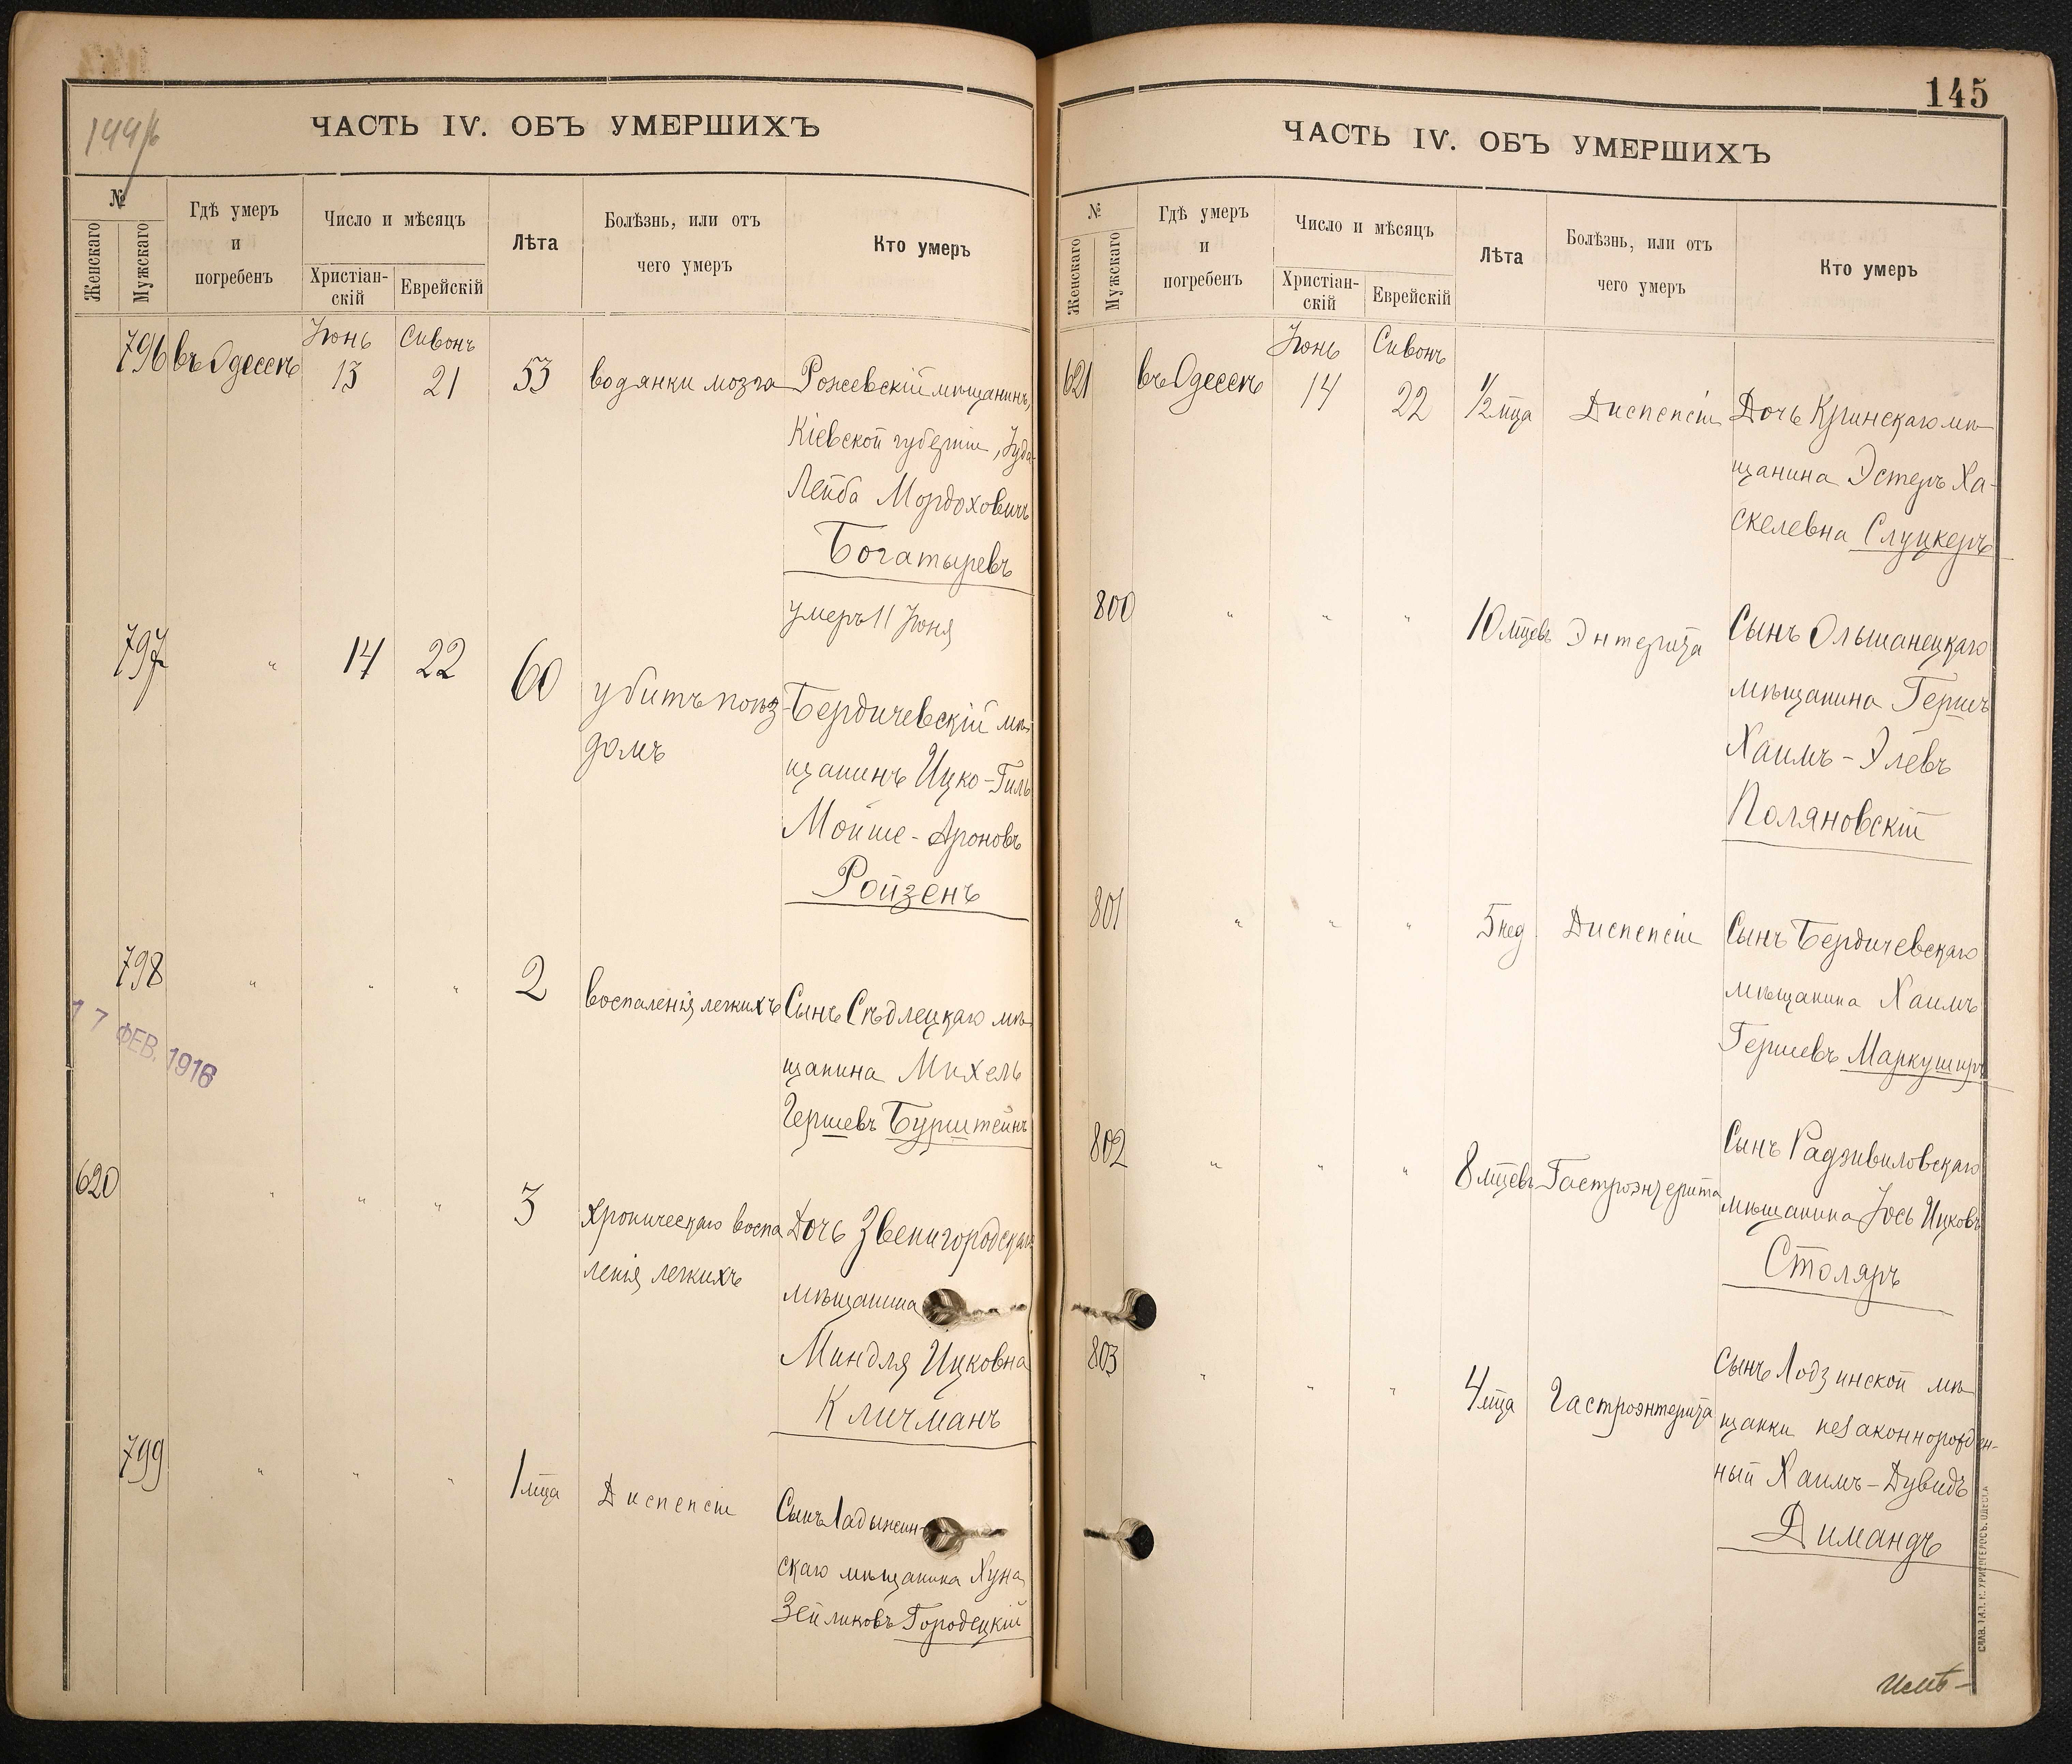 144/б
ЧАСТЬ IV. ОБЪ УМЕРШИХЪ
№
Женскаго
Мужскаго
Гдѣ умеръ
и
погребенъ
Число и мѣсяцъ
Христіан-
скій
Еврейскій
Лѣта
Болѣзнь, или отъ
чего умеръ
Кто умеръ
Іюнь Сивонъ
796 въ Одессѣ 13 21 53 водянки мозга Рожевскій мѣщанинъ,
Кіевской губерніи, Іуда-
Лейба Мордоховичъ
Богатыревъ
умеръ 11 Іюня
797 " 14 22 60 убитъ поѣз- Бердичевскій мѣ-
домъ щанинъ Ицко-Гиль
Мойше-Ароновъ
Ройзенъ
798 " " " 2 воспаленія легкихъ Сынъ Сѣдлецкаго мѣ-
щанина Михель
Гершевъ Бурштейнъ
17 ФЕВ. 1916
620 " " " 3 хроническаго воспа Дочь Звенигородскаго
ленія легкихъ мѣщанина
Миндля Ицковна
Кличманъ
799 " " " 1 мца Диспепсіи Сынъ Ладыжин-
скаго мѣщанина Хуна
Зейликовъ Городецкій
145
ЧАСТЬ IV. ОБЪ УМЕРШИХЪ
№
Женскаго
Мужскаго
Гдѣ умеръ
и
погребенъ
Число и мѣсяцъ
Христіан-
скій
Еврейскій
Лѣта
Болѣзнь, или отъ
чего умеръ
Кто умеръ
Іюнь Сивонъ
621 въ Одессѣ 14 22 1/2 мца Диспепсіи Дочь Кринскаго мѣ-
щанина Эстеръ Ха-
скелевна Слуцкеръ
800 " " " 10 мцевъ Энтерита Сынъ Ольшанецкаго
мѣщанина Гершъ
Хаимъ-Элевъ
Поляновскій
801 " " " 5 нед Диспепсіи Сынъ Бердичевскаго
мѣщанина Хаимъ
Гершевъ Маркуширъ
802 " " " 8 мцевъ Гастроэнтерита Сынъ Радзивиловскаго
мѣщанина Іось Ицковъ
Столяръ
803 " " " 4 мца Гастроэнтерита Сынъ Лодзинской мѣ-
щанки незаконнорожден-
ный Хаимъ-Дувидъ
Димандъ